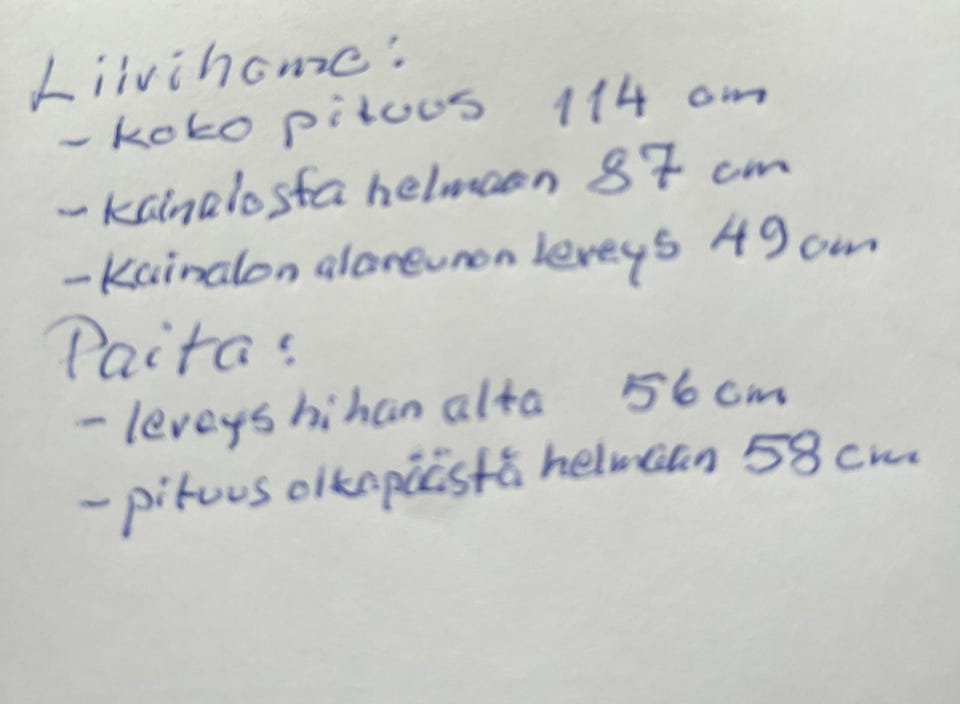 Liivihame:
- koko pituus 114 cm
- kainalosta helmaan 87 cm
- Kainalon alareunan leveys 49 cm
Paita:
- leveys hihan alta 56 cm
- pituus olkapäästä helmaan 58 cm